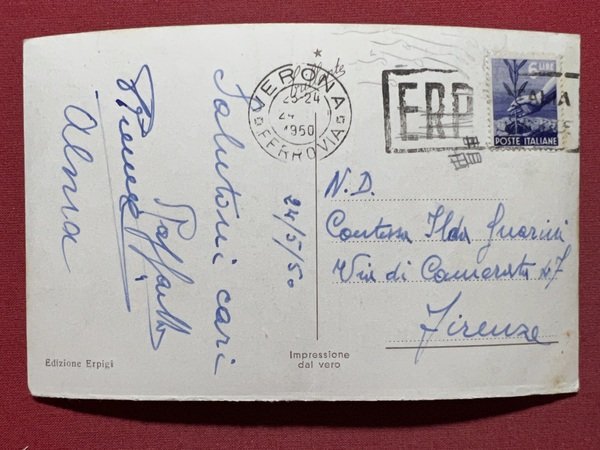 Salutoni cari
24/5/50
Raffaello
Alma
VERONA
23-24
24
1950
FERROVIA
ERP
6 LIRE
POSTE ITALIANE
N.D.
Contessa Ilda Guarini
Via di Camerata 7
Firenze
Edizione Erpigi
Impressione
dal vero